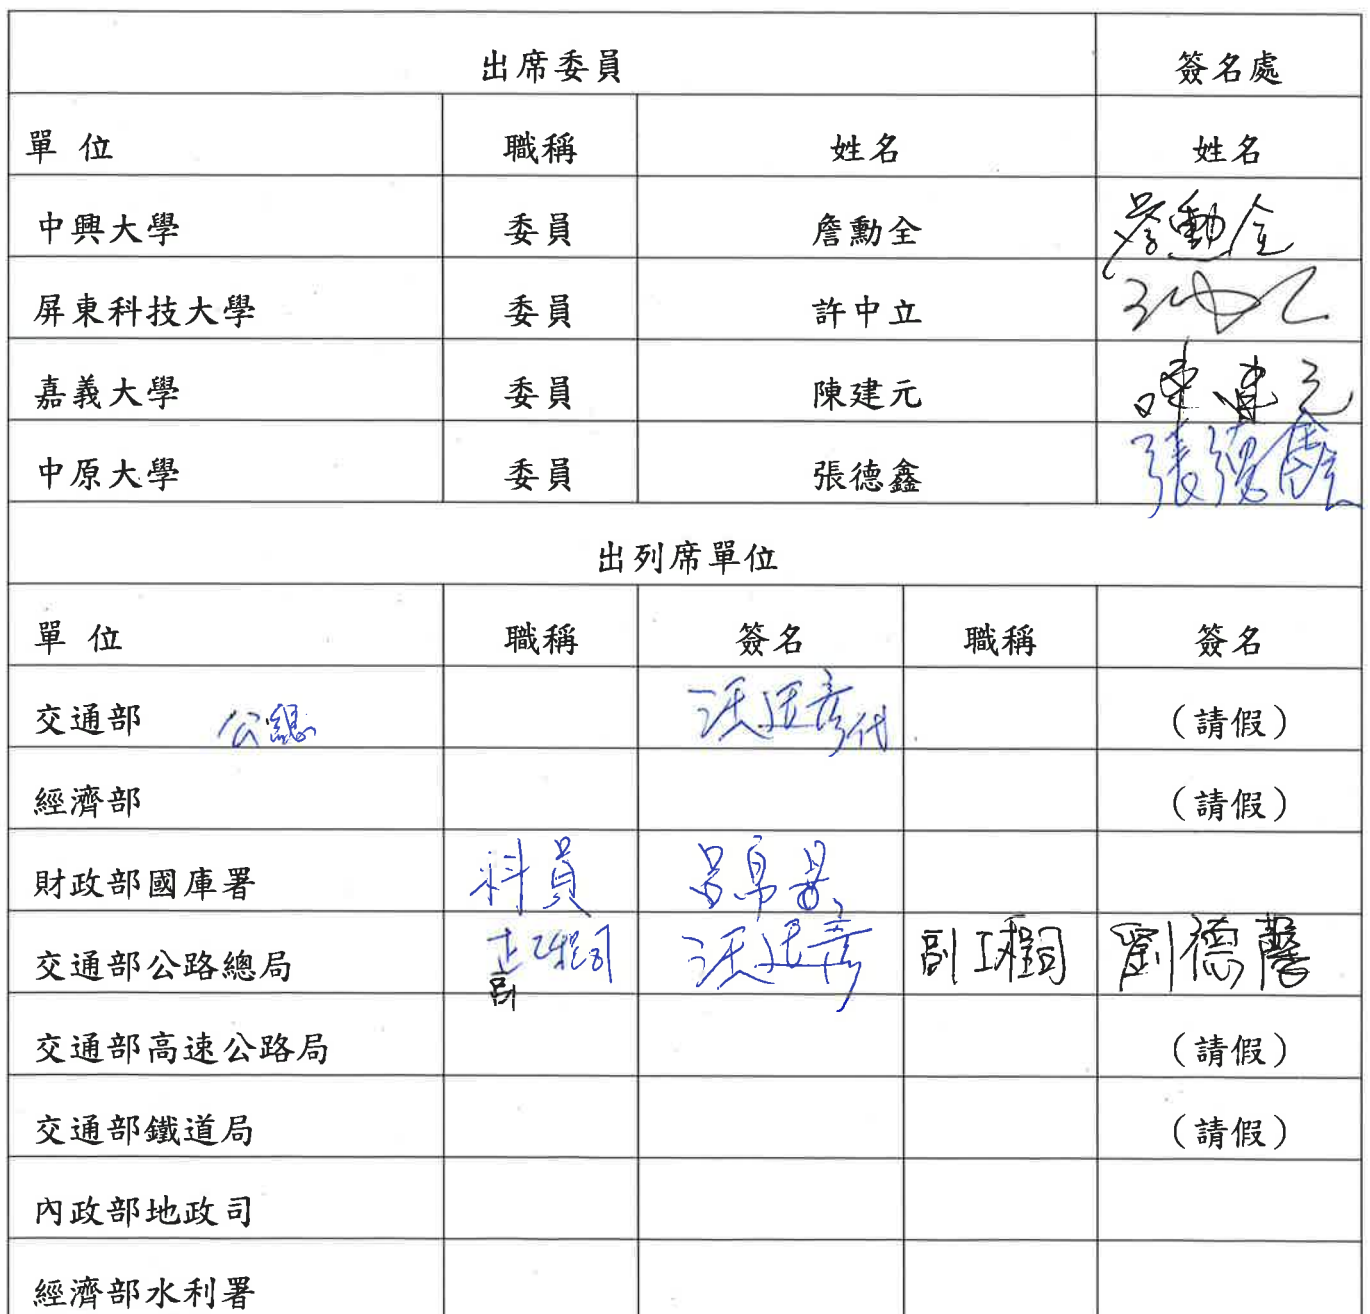 出席委員 簽名處
單 位 職稱 姓名 姓名
中興大學 委員 詹勳全 詹勳全
屏東科技大學 委員 許中立
嘉義大學 委員 陳建元 陳建元
中原大學 委員 張德鑫 張德鑫
出列席單位
單 位 職稱 簽名 職稱 簽名
交通部 公總 代 （請假）
經濟部 （請假）
財政部國庫署 科員
交通部公路總局 副工程司 劉德馨
交通部高速公路局 （請假）
交通部鐵道局 （請假）
內政部地政司
經濟部水利署